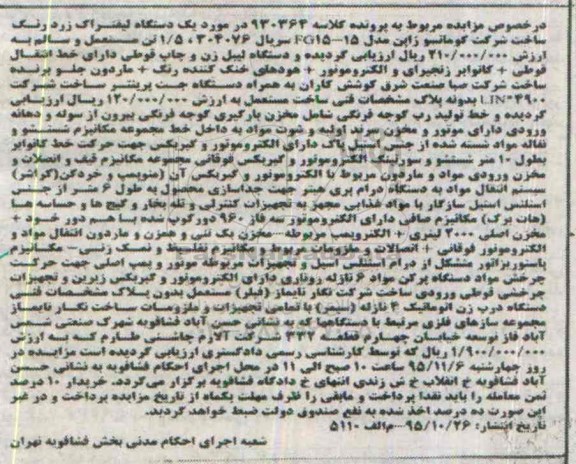 درخصوص مزایده مربوط به پرونده کلاسه ۹۳۰۳۶۴ در مورد یک دستگاه لیفتراک زرد رنگ
ساخت شرکت کوماتسو ژاپن مدل FG15-15 سریال ۳۰۴۰۷۶ ، ۱/۵ تن مستعمل و سالم به
ارزش ۲۱۰/۰۰۰/۰۰۰ ریال ارزیابی گردیده و دستگاه لیبل زن و چاپ قوطی دارای خط انتقال
قوطی + کانوایر زنجیرای و الکتروموتور + هودهای خنک کننده رنگ + ماردون جلو برنده
ساخت شرکت صبا صنعت شرق کوشش کاران به همراه دستگاه جت پرینتر ساخت شرکت
LIN-۴۹۰۰ بدونه پلاک مشخصات فنی ساخت مستعمل به ارزش ۱۲۰/۰۰۰/۰۰۰ ریال ارزیابی
گردیده و خط تولید رب گوجه فرنگی شامل مخزن بارگیری گوجه فرنگی بیرون از سوله و دهانه
ورودی دارای موتور و مخزن سرند اولیه و شوت مواد به داخل خط مجموعه مکانیزم شستشو و
نقاله مواد شسته شده از جنس استیل پاک دارای الکتروموتور و گیربکس جهت حرکت خط کانوایر
بطول ۱۰ متر شستشو و سورتینگ الکتروموتور و گیربکس فوقانی مجموعه مکانیزم قیف و اتصلات و
مخزن ورودی مواد و ماردون مربوط با الکتروموتور و گیربکس آن (منوپمپ و خردکن(کراشر)
سیستم انتقال مواد به دستگاه درام پری هیتر جهت جداسازی محصول به طول ۶ متر از جنس
استنلس استیل سازگار با مواد غذایی مجهز به تجهیزات کنترلی و تله بخار و گیج ها و حساسه ها
(هات برک) مکانیزم صافی دارای الکتروموتور سه فاز ۹۶۰ دورگوب شده با هم دور خرد +
مخزن اصلی ۲۰۰۰ لیتری + الکتروپمپ مربوطه-مخزن یک تنی و همزن و ماردون انتقال مواد و
الکتروموتور فوقانی + اتصالات و ملزومات مربوط و مکانیزم تغلیظ و نمسک زنی- مکانیزم
پاستوریزاتور متشکل از درام استنلس استیل و تجهیزات مربوطه موتور و پمپ اصلی جهت حرکت
چرخش مواد دستگاه پرکن مواد ۶ نازله روتاری دارای الکتروموتور و گیربکس زیرین و تجهیزات
چرخشی قوطی ورودی ساخت شرکت نگار تایماز (فیلر) مستعمل بدون پلاک مشخصات فنی
دستگاه درب زن اتوماتیک ۴ نازله (سیمر) با تمامی تجهیزات و ملزومات ساخت نگار تایماز
مجموعه سازهای فلزی مرتبط با دستگاهها که به نشانی حسن آباد فشافویه شهرک صنعتی شمس
آباد فاز توسعه خیابان چهارم قطعه ۳۳۷ شرکت آلارم چاشنی طارم که به ارزش
۱/۹۰۰/۰۰۰/۰۰۰ ریال که توسط کارشناسی رسمی دادگستری ارزیابی گردیده است مزایده در
روز چهارشنبه ۹۵/۱۱/۶ ساعت ۱۰ صبح الی ۱۱ در محل اجرای احکام فشافویه به نشانی حسن
آباد فشافویه خ انقلاب خ ش زندی انتهای خ دادگاه فشافویه برگزار می‌گردد. خریدار ۱۰ درصد
ثمن معامله را باید نقدا پرداخت و مابقی را ظرف مهلت یکماه از تاریخ مزایده پرداخت و در غیر
این صورت ده درصد اخذ شده به نفع صندوق دولت ضبط خواهد گردید.
تاریخ انتشار: ۹۵/۱۰/۲۶-م‌الف ۵۱۱۰
شعبه اجرای احکام مدنی بخش فشافویه تهران